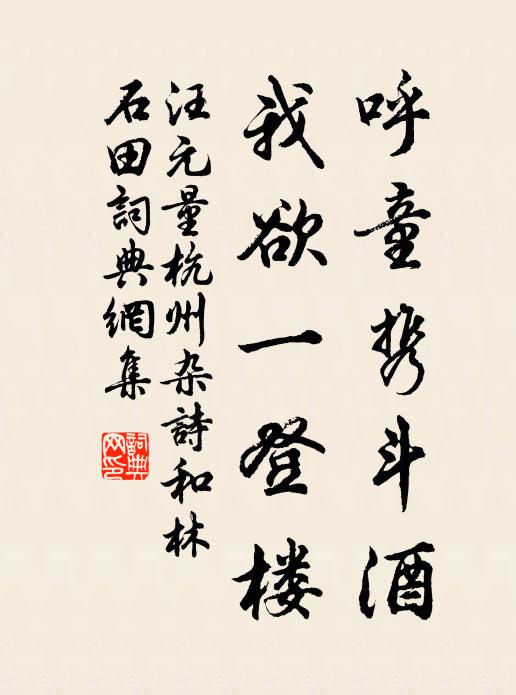 呼童携斗酒
我欲一登楼
汪元量杭州杂詩和林
石田詞典網集
詞典网印